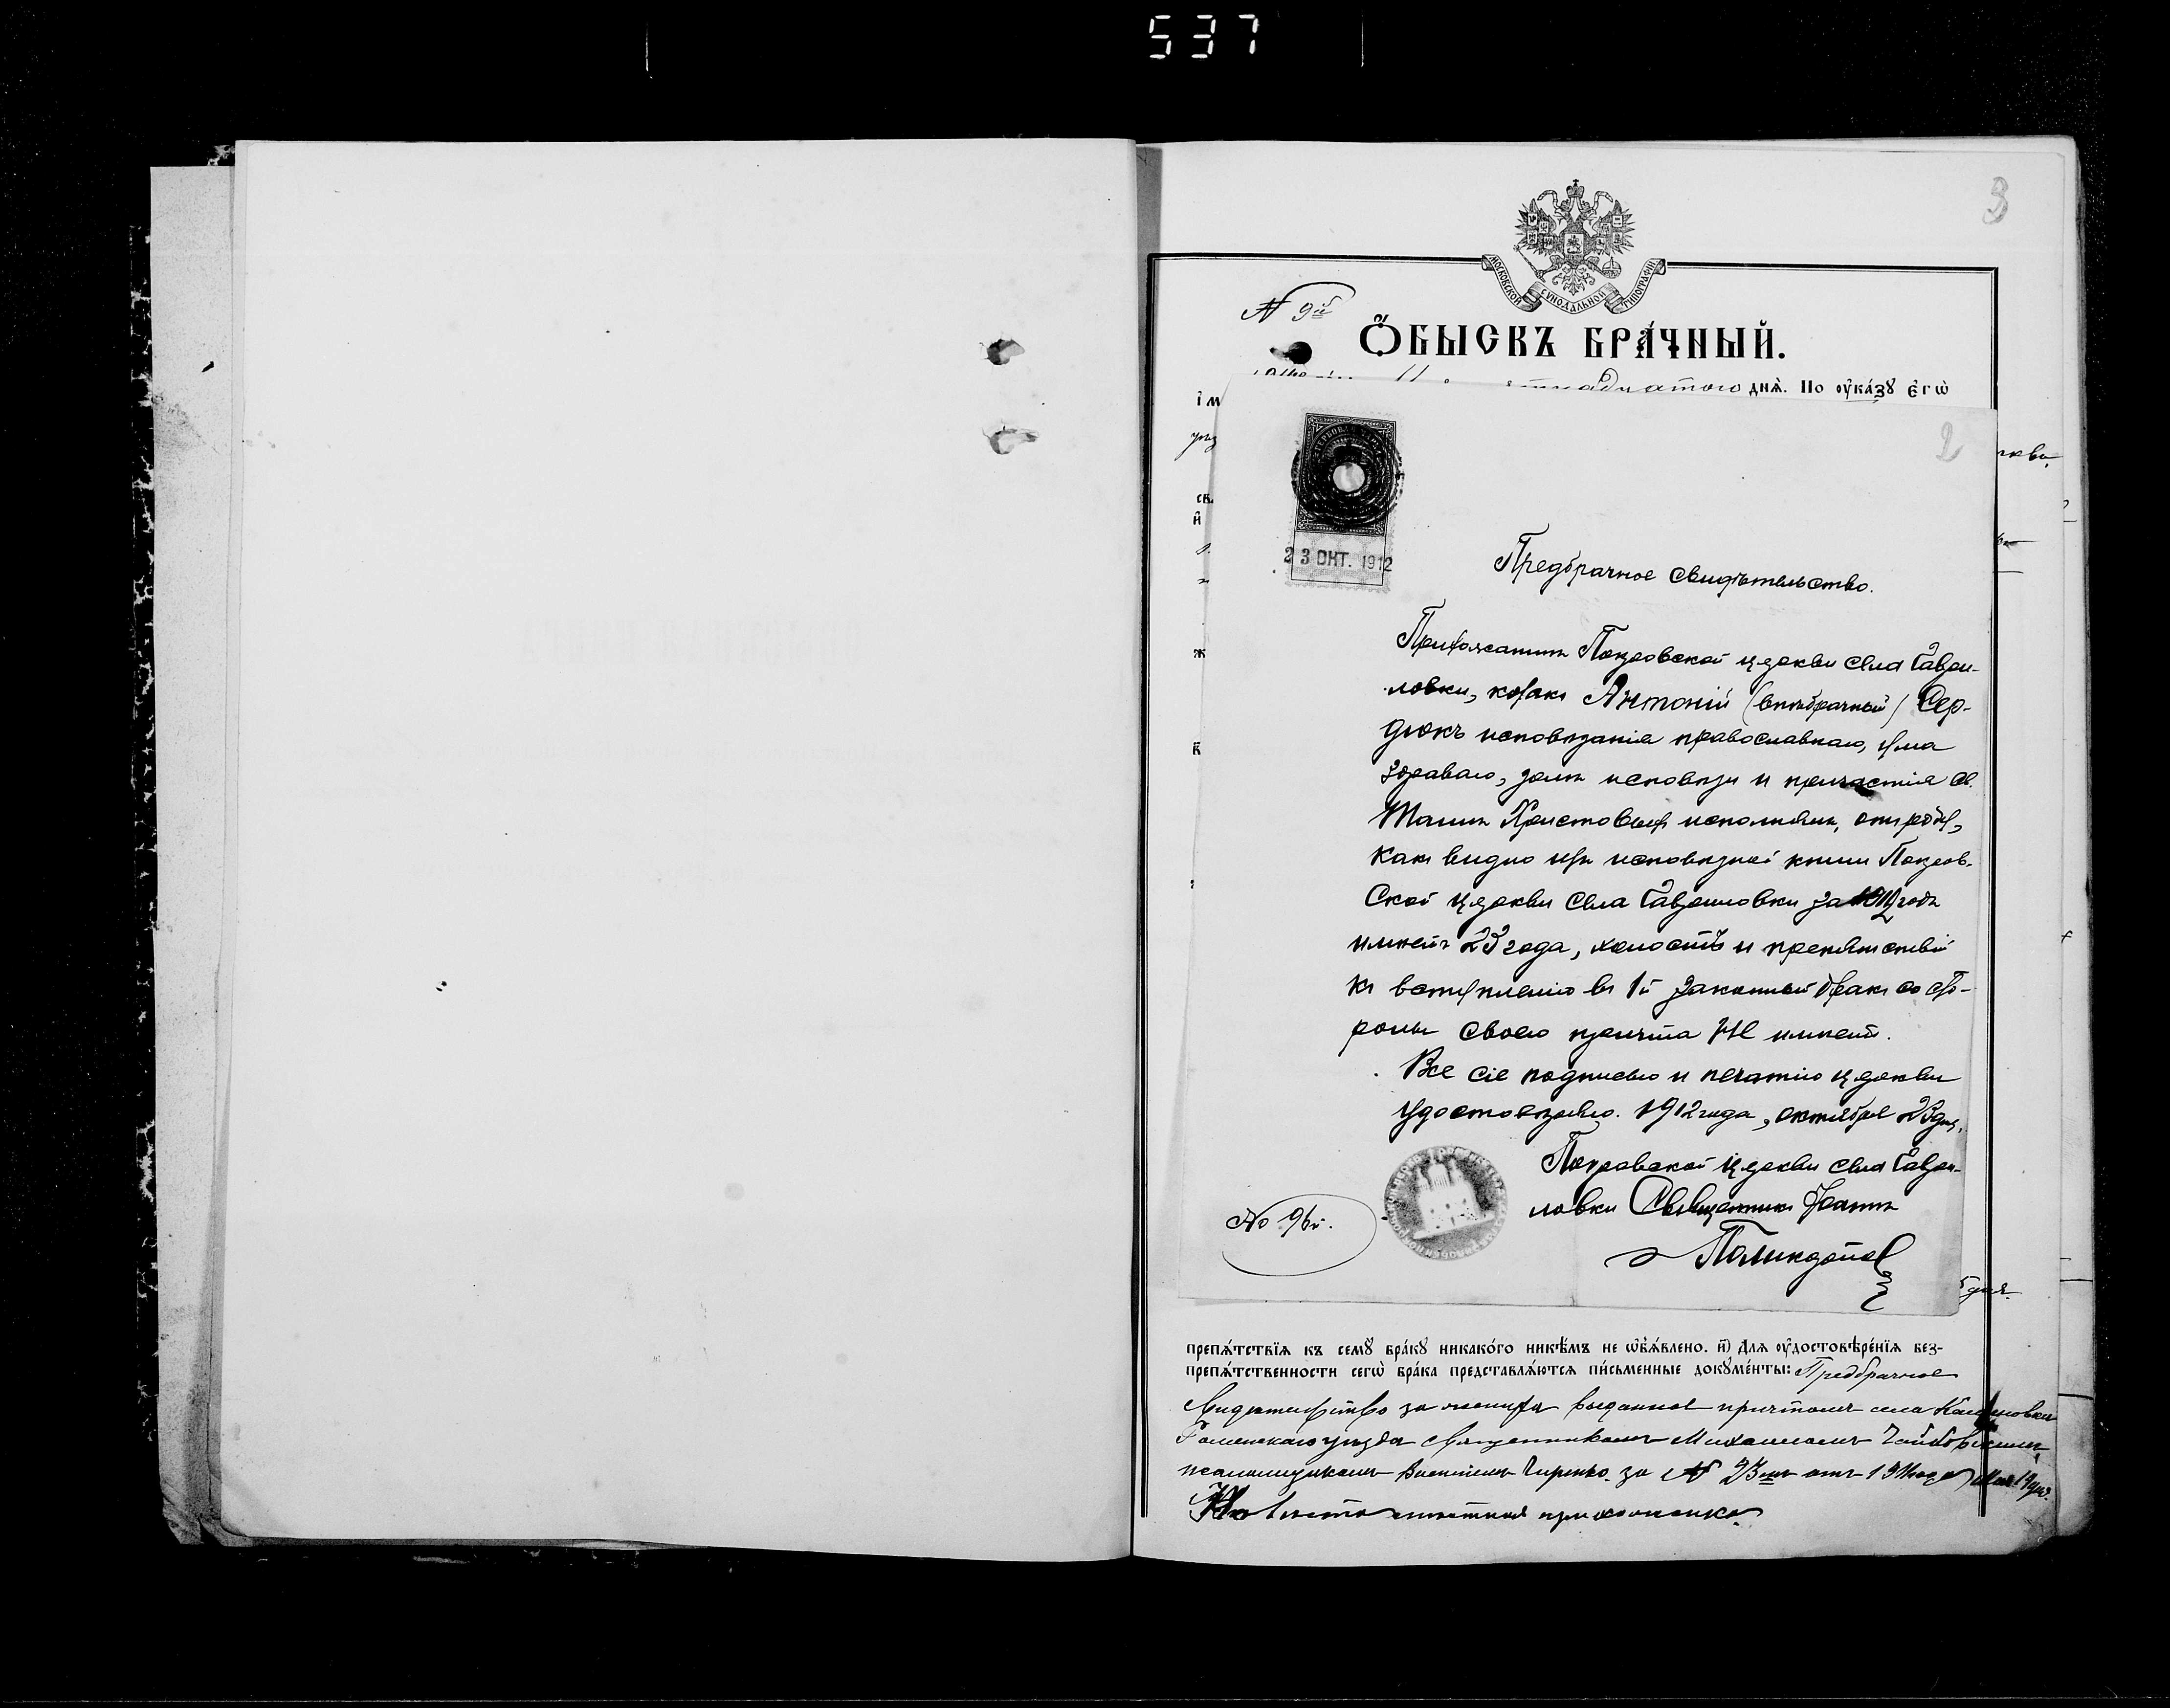 537
3
МОСКОВСКОЙ СѴНОДАЛЬНОЙ ТИПОГРАФІИ
№ 9й
ОБЫСКЪ БРАЧНЫЙ.
надцатого днѧ. По ᲂука́зꙋ Є҆гѡ̀
2
23 ОКТ. 1912
Предбрачное свидѣтельство.
Прихожанинъ Покровской церкви села Гаври-
ловки, козакъ Антоній (внѣбрачный) Сер-
дюкъ исповѣданія православнаго, ума
здраваго, долгъ исповѣди и причастія Св.
Таинъ Христовыхъ исполнялъ, отъ роду,
какъ видно изъ исповѣдной книги Покров-
ской церкви села Гавриловки за 1912 годъ
имѣетъ 23 года, холостъ и препятствій
къ вступленію въ 1й законный бракъ со сто-
роны своего причта не имѣетъ.
Все сіе подписью и печатью церкви
удостовѣряю. 1912 года, октября 23 дня.
Покровской церкви села Гаври-
ловки Священникъ Іоаннъ
Поликарповъ
№ 96й.
препѧ́тствїѧ къ семꙋ̀ бра́кꙋ никако́гѡ никѣ́мъ не ѡ҆б̾ѧ́влено. и҃) Длѧ ᲂу҆достовѣре́нїѧ без-
препѧ́тственности сегѡ̀ бра́ка представлѧ́ютсѧ пи́сьменные докꙋме́нты: Предбрачное
Свидѣтельство за жениха выданное причтомъ села
Роменскаго уѣзда Священникомъ Михаиломъ
псаломщикомъ за № 23мъ отъ года
Невѣста мѣстная прихожанка